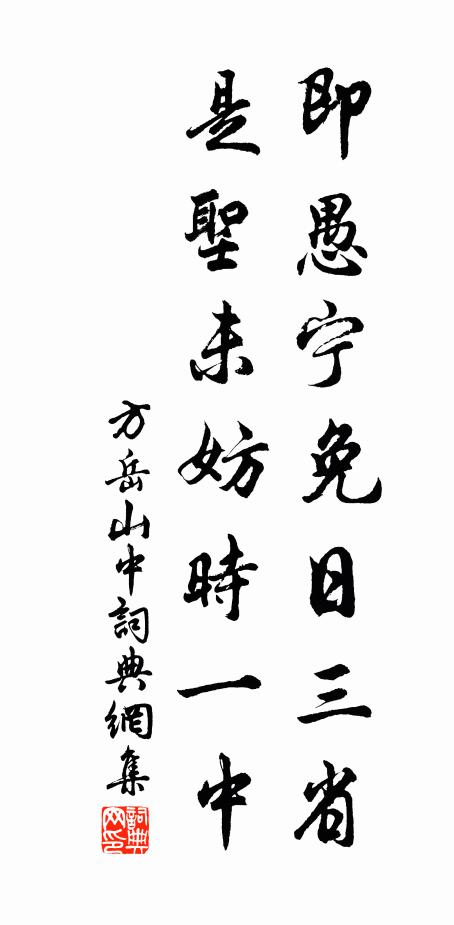 即愚宁免日三省
是聖未妨時一中
方岳山中詞典網集
詞典
网印